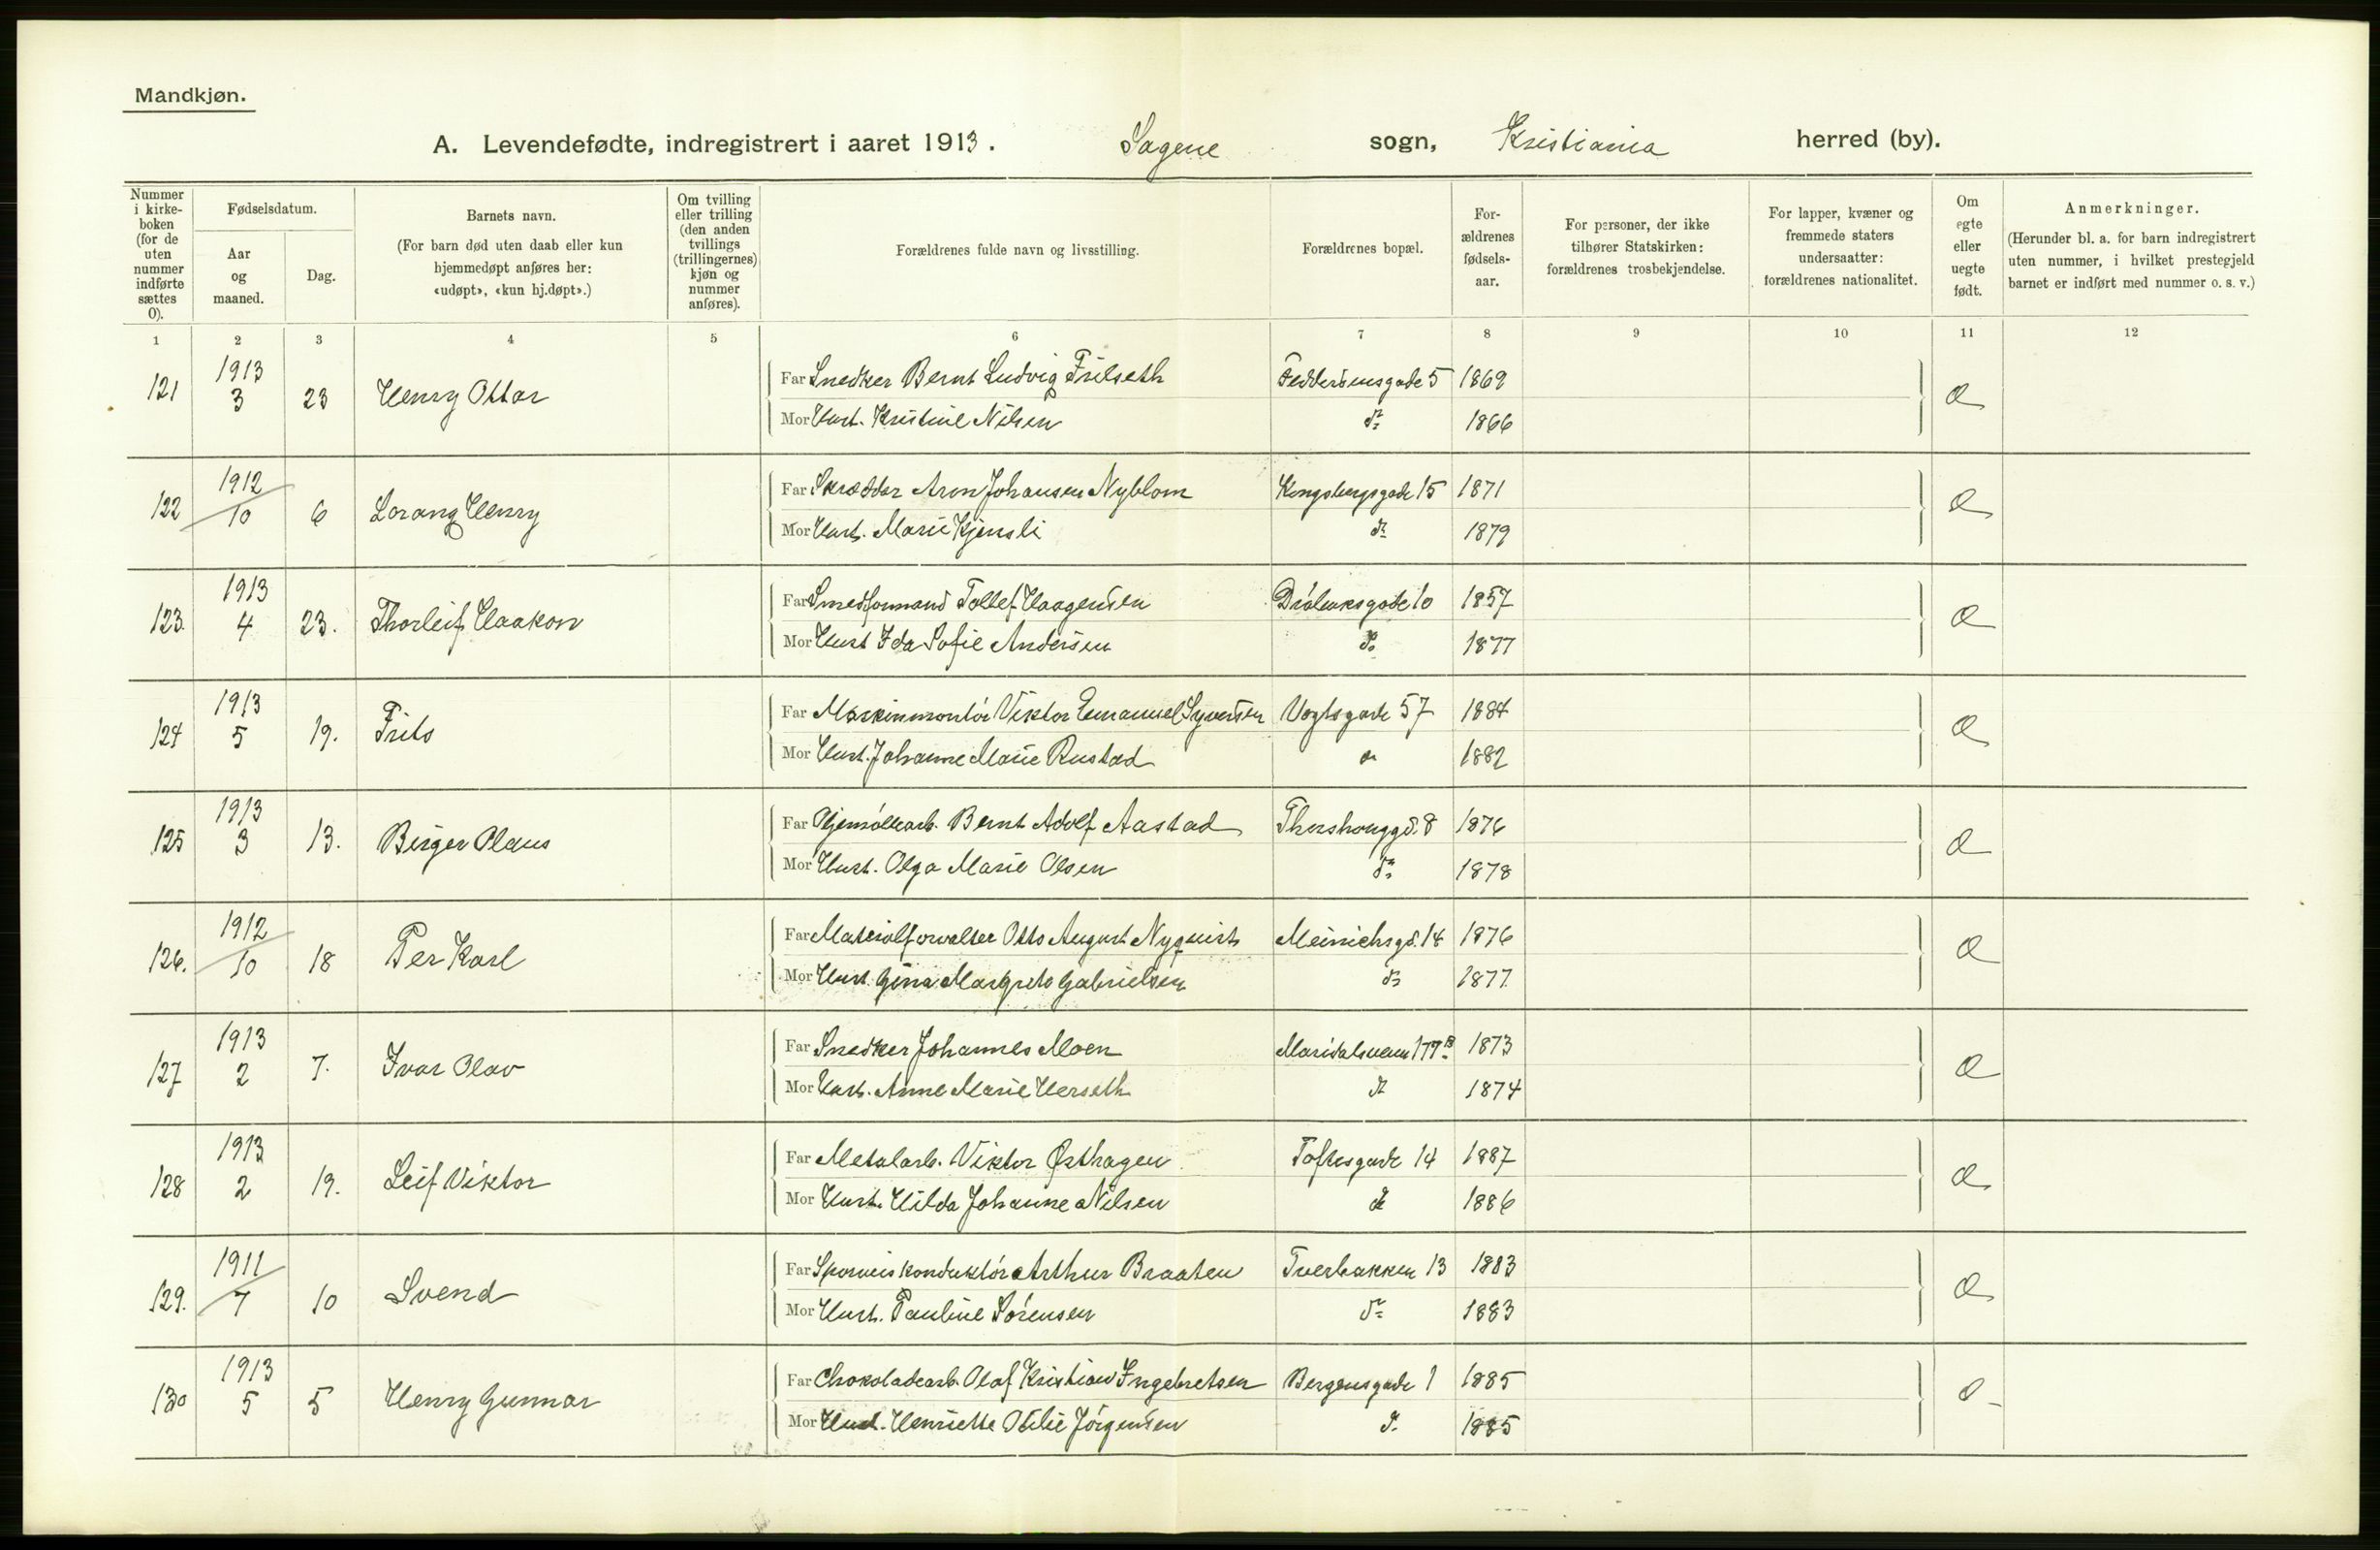 Mandkjøn.
A. Levendefødte, indregistrert i aaret 1913. Sagene sogn, Kristiania herred (by).
Nummer i kirkeboken (for de uten nummer indførte sættes 0).
Fødselsdatum.
Aar og maaned.
Dag.
Barnets navn.
(For barn død uten daab eller kun hjemmedøpt anføres her: «udøpt», «kun hj.døpt».)
Om tvilling eller trilling (den anden tvillings (trillingernes) kjøn og nummer anføres).
Forældrenes fulde navn og livsstilling.
Forældrenes bopæl.
Forældrenes fødselsaar.
For personer, der ikke tilhører Statskirken: forældrenes trosbekjendelse.
For lapper, kvæner og fremmede staters undersaatter: forældrenes nationalitet.
Om egte eller uegte født.
Anmerkninger.
(Herunder bl. a. for barn indregistrert uten nummer, i hvilket prestegjeld barnet er indført med nummer o. s. v.)
1 2 3 4 5 6 7 8 9 10 11 12
121 1913 3 23 Henry Ottar Far Snedker Bernt Ludvig Frilseth Feddersensgade 5 1869
Mor Hust. Kristine Nilsen do 1866
122 1912 10 6 Lorang Henry Far Skrædder Aron Johansen Nyblom Kongsbergsgade 15 1871
Mor Hust. Marie Kjensli do 1879
123. 1913 4 23. Thorleif Haakon Far Smedformand Tollef Haagensen 10 1857
Mor Hust Ida Sofie Andersen do 1877
124 1913 5 19. Frits Far Maskinmontör Viktor Emanuel Syversen Vogtsgade 57 1884
Mor Hust. Johanne Marie Rustad 1882
125 1913 3 13. Birger Olaus Far Bernt Adolf Aastad Thorshouggd. 8 1876
Mor Hust. Olga Marie Olsen do 1878
126. 1912 10 18 Per Karl Far Materialforvalter Otto August Nyquist Meinichsgd. 14 1876
Mor Hust. Gina Margrete Gabrielsen do 1877
127 1913 2 7. Ivar Olav Far Snedker Johannes Moen Maridalsveien 177B 1873
Mor Hust. Anne Marie Herseth do 1874
128 1913 2 19. Leif Viktor Far Metalarb. Viktor Østhagen Toftesgade 14 1887
Mor Hust. Hilda Johanne Nilsen do 1886
129. 1911 7 10 Svend Far Sporveiskonduktör Arthur Braaten Tverbakken 13 1883
Mor Hust. Pauline Sörensen do 1883
130 1913 5 5 Henry Gunnar Far Chokoladearb. Olaf Kristian Ingebretsen Bergensgade 1 1885
Mor Hust. Henriette Otilie Jörgensen do 1885